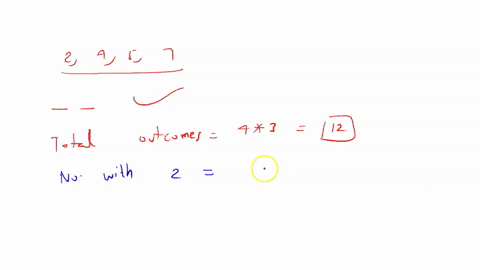 2, 4, 5, 7
_ _
Total outcomes = 4 * 3 = 12
No. with 2 =